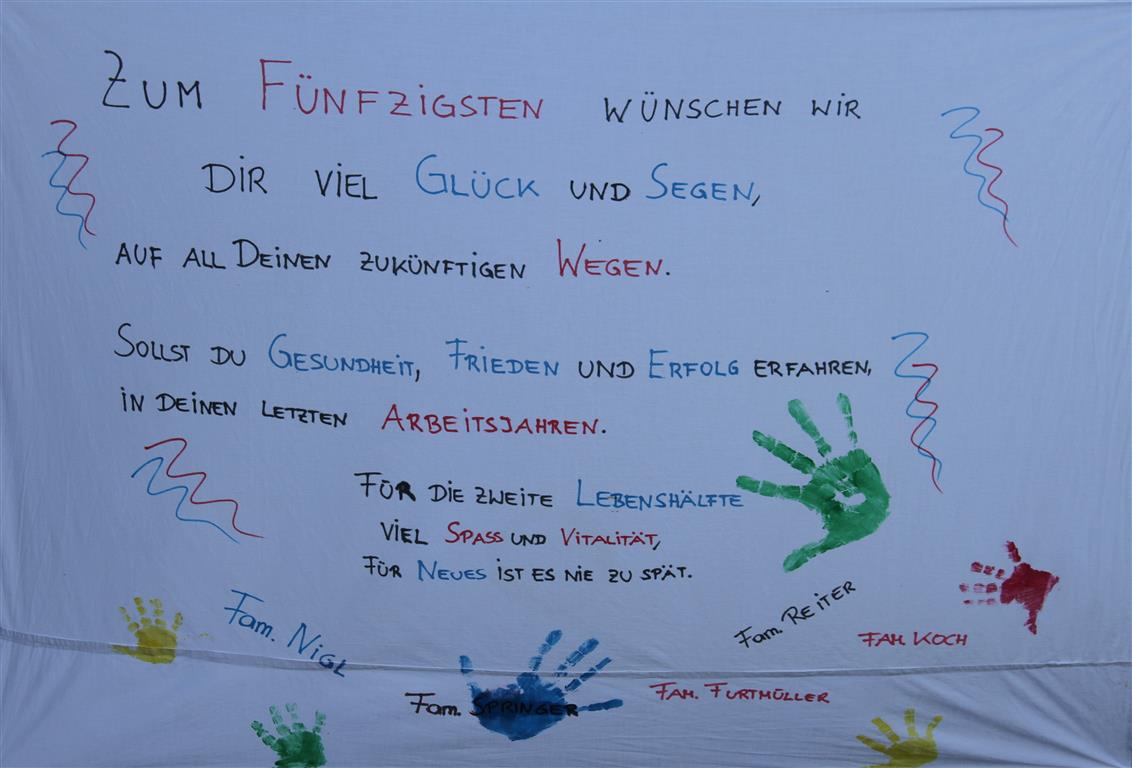 Zum Fünfzigsten wünschen wir
Dir viel Glück und Segen,
auf all Deinen zukünftigen Wegen.
Sollst du Gesundheit, Frieden und Erfolg erfahren,
in Deinen letzten Arbeitsjahren.
Für die zweite Lebenshälfte
viel Spass und Vitalität,
für Neues ist es nie zu spät.
Fam. Nigl
Fam. Reiter
Fam. Koch
Fam. Springer
Fam. Furtmüller